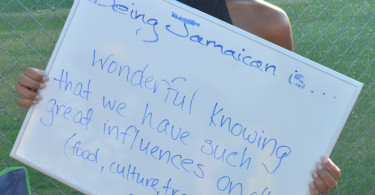 Being Jamaican is....
Wonderful Knowing
that we have such
great influences on
(food, culture,